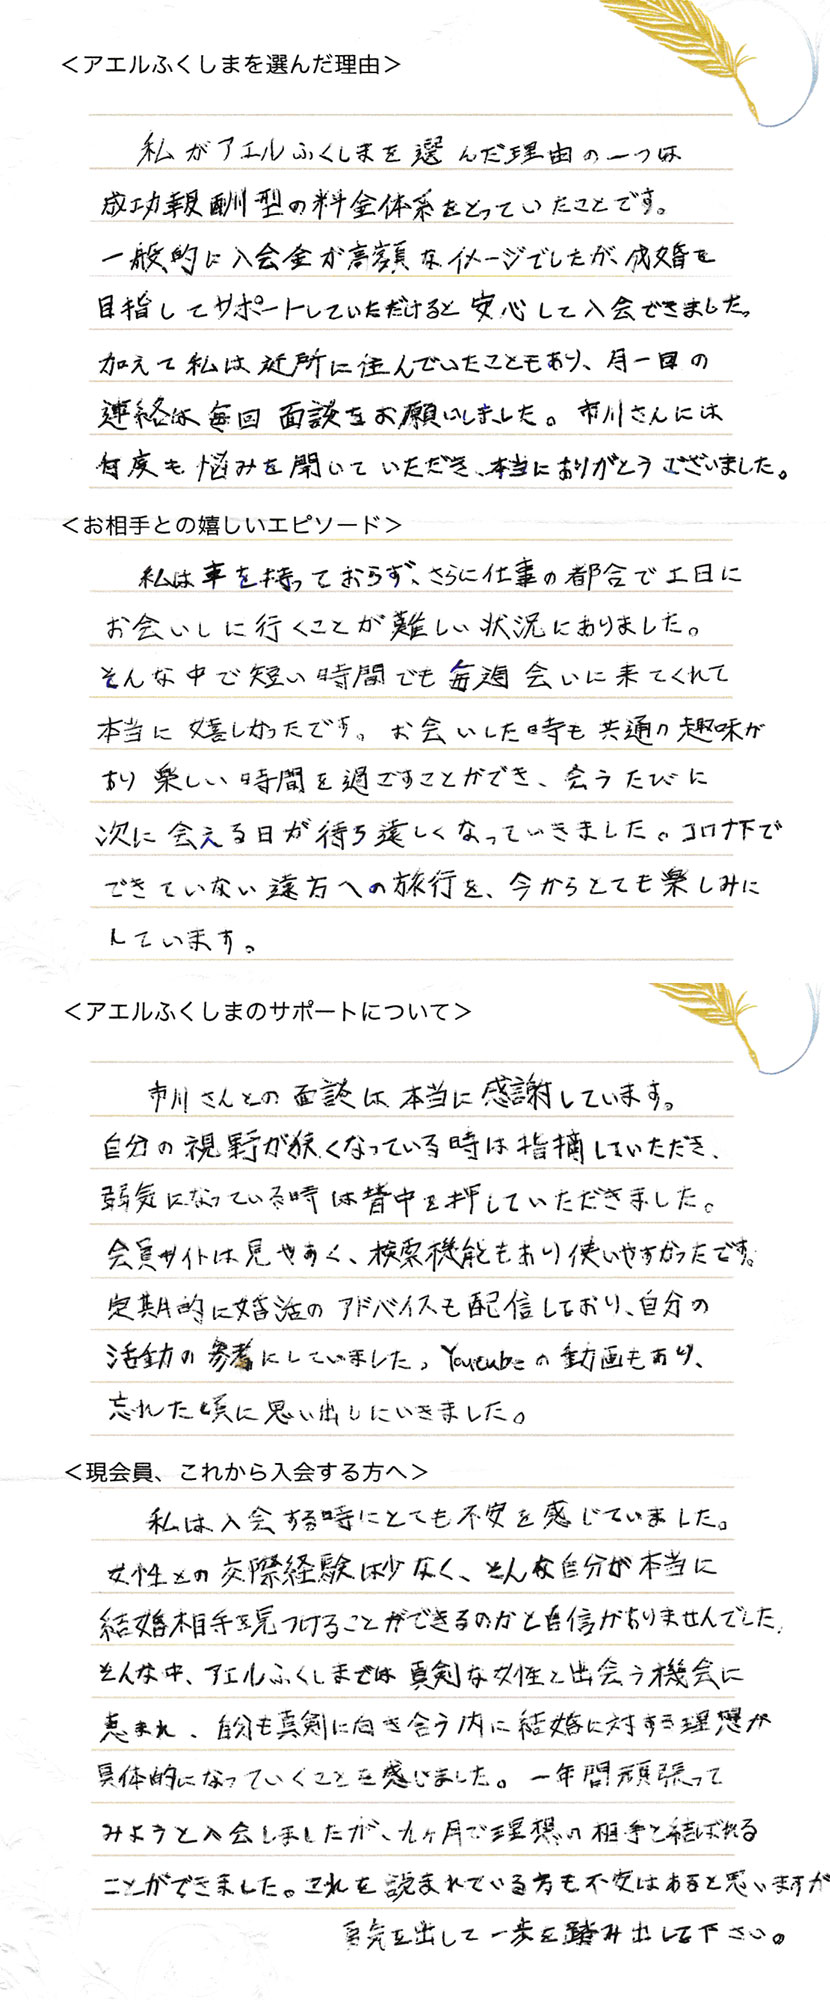 ＜アエルふくしまを選んだ理由＞
私がアエルふくしまを選んだ理由の一つは
成功報酬型の料金体系をとっていたことです。
一般的に入会金が高額なイメージでしたが、成婚を
目指してサポートしていただけると安心して入会できました。
加えて私は近所に住んでいたこともあり、月一回の
連絡は毎回面談をお願いしました。市川さんには
何度も悩みを聞いていただき、本当にありがとうございました。
＜お相手との嬉しいエピソード＞
私は車を持っておらず、さらに仕事の都合で土日に
お会いしに行くことが難しい状況にありました。
そんな中で短い時間でも毎週会いに来てくれて
本当に嬉しかったです。お会いした時も共通の趣味が
あり楽しい時間を過ごすことができ、会うたびに
次に会える日が待ち遠しくなっていきました。コロナ下で
できていない遠方への旅行を、今からとても楽しみに
しています。
＜アエルふくしまのサポートについて＞
市川さんとの面談は本当に感謝しています。
自分の視野が狭くなっている時は指摘していただき、
弱気になっている時は背中を押していただきました。
会員サイトは見やすく、検索機能もあり使いやすかったです。
定期的に婚活のアドバイスも配信しており、自分の
活動の参考にしていました。Youtubeの動画もあり、
忘れた頃に思い出しにいきました。
＜現会員、これから入会する方へ＞
私は入会する時にとても不安を感じていました。
女性との交際経験は少なく、そんな自分が本当に
結婚相手を見つけることができるのかと自信がありませんでした。
そんな中、アエルふくしまでは真剣な女性と出会う機会に
恵まれ、自分も真剣に向き合う内に結婚に対する理想が
具体的になっていくことを感じました。一年間頑張って
みようと入会しましたが、九ヶ月で理想の相手と結ばれる
ことができました。これを読まれている方も不安はあると思いますが
勇気を出して一歩を踏み出して下さい。